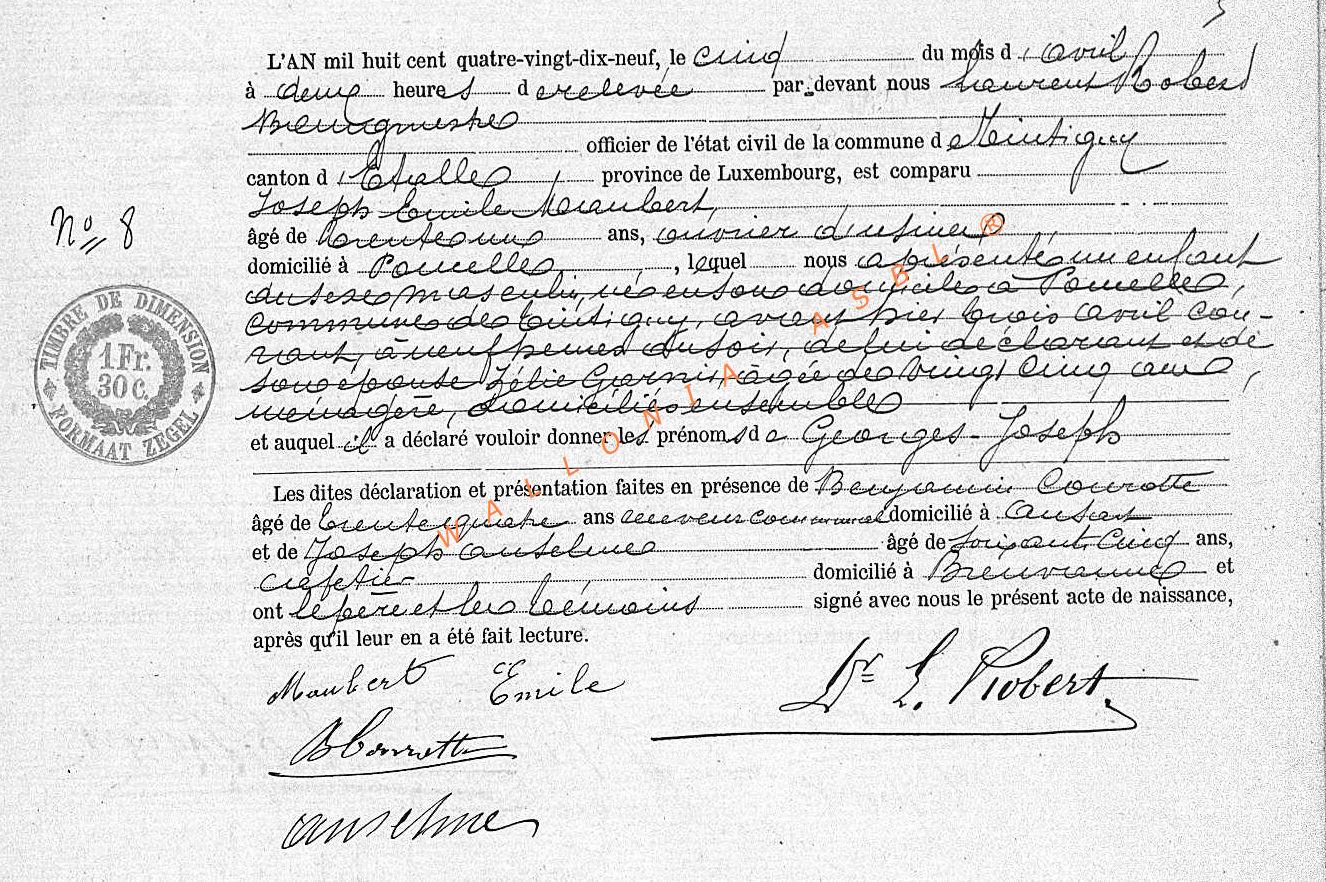 L'AN mil huit cent quatre-vingt-dix-neuf, le cinq du mois d'avril
à deux heures de relevée par-devant nous Laurent Robert
Bourgmestre
officier de l'état civil de la commune de Tintigny
canton d'Etalle, province de Luxembourg, est comparu
Joseph Emile Maubert,
N° 8
âgé de trente-un ans, ouvrier d'usine
domicilié à Poncelle, lequel nous a présenté un enfant
du sexe masculin, né en son domicile à Poncelle,
commune de Tintigny, avant hier trois avril cou-
rant, à neuf heures du soir, de lui déclarant et de
son épouse Zélie Giernis, âgée de vingt cinq ans,
ménagère, domiciliés ensemble
et auquel il a déclaré vouloir donner les prénoms de Georges-Joseph
TIMBRE DE DIMENSION
1 Fr.
30 C.
FORMAAT ZEGEL
Les dites déclaration et présentation faites en présence de Benjamin Courotte
âgé de trente quatre ans receveur communal domicilié à Ansart
et de Joseph Anselme âgé de soixante cinq ans,
cafetier domicilié à Breuvanne et
ont le père et les témoins signé avec nous le présent acte de naissance,
après qu'il leur en a été fait lecture.
Maubert Emile
Dr L. Robert
B Courotte
Anselme
WALLONIA ASBL ®